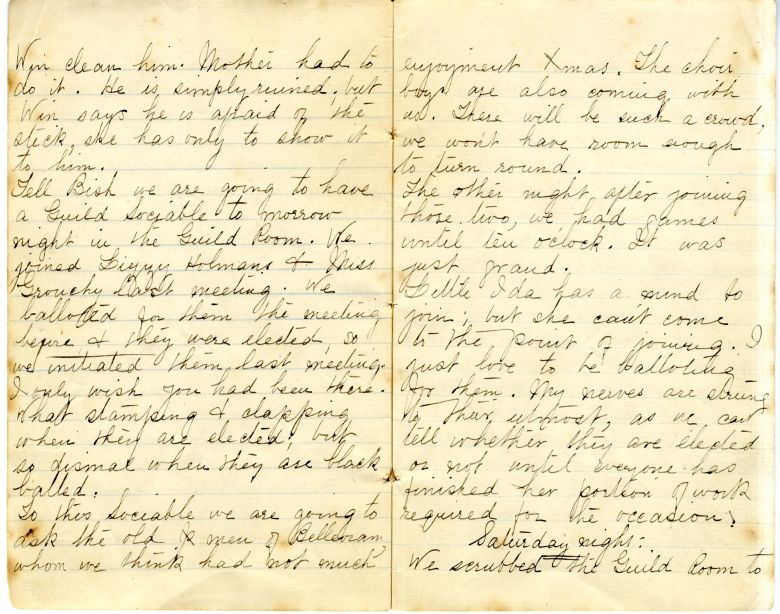 Win clean him. Mother had to
do it. He is simply ruined, but
Win says he is afraid of the
stick, she has only to show it
to him.
Tell Bish we are going to have
a Guild Sociable to morrow
night in the Guild Room. We
joined Lizzy Holmans & Miss
Grouchy last meeting. We
balloted for them the meeting
before & they were elected, so
we initiated them last meeting.
I only wish you had been there.
What stamping & clapping
when they are elected, but
so dismal when they are black
balled.
To this Sociable we are going to
ask the old men of Belleoram
whom we think had not much
enjoyment Xmas. The choir
boys are also coming with
us. There will be such a crowd,
we won't have room enough
to turn round.
The other night after joining
those two, we had games
until ten oclock. It was
just grand.
Little Ida has a mind to
join, but she cant come
to the point of joining. I
just love to be balloting
for them. My nerves are strung
to their utmost, as we cant
tell whether they are elected
or not until everyone has
finished her portion of work
required for the occasion.
Saturday night:
We scrubbed the Guild Room to